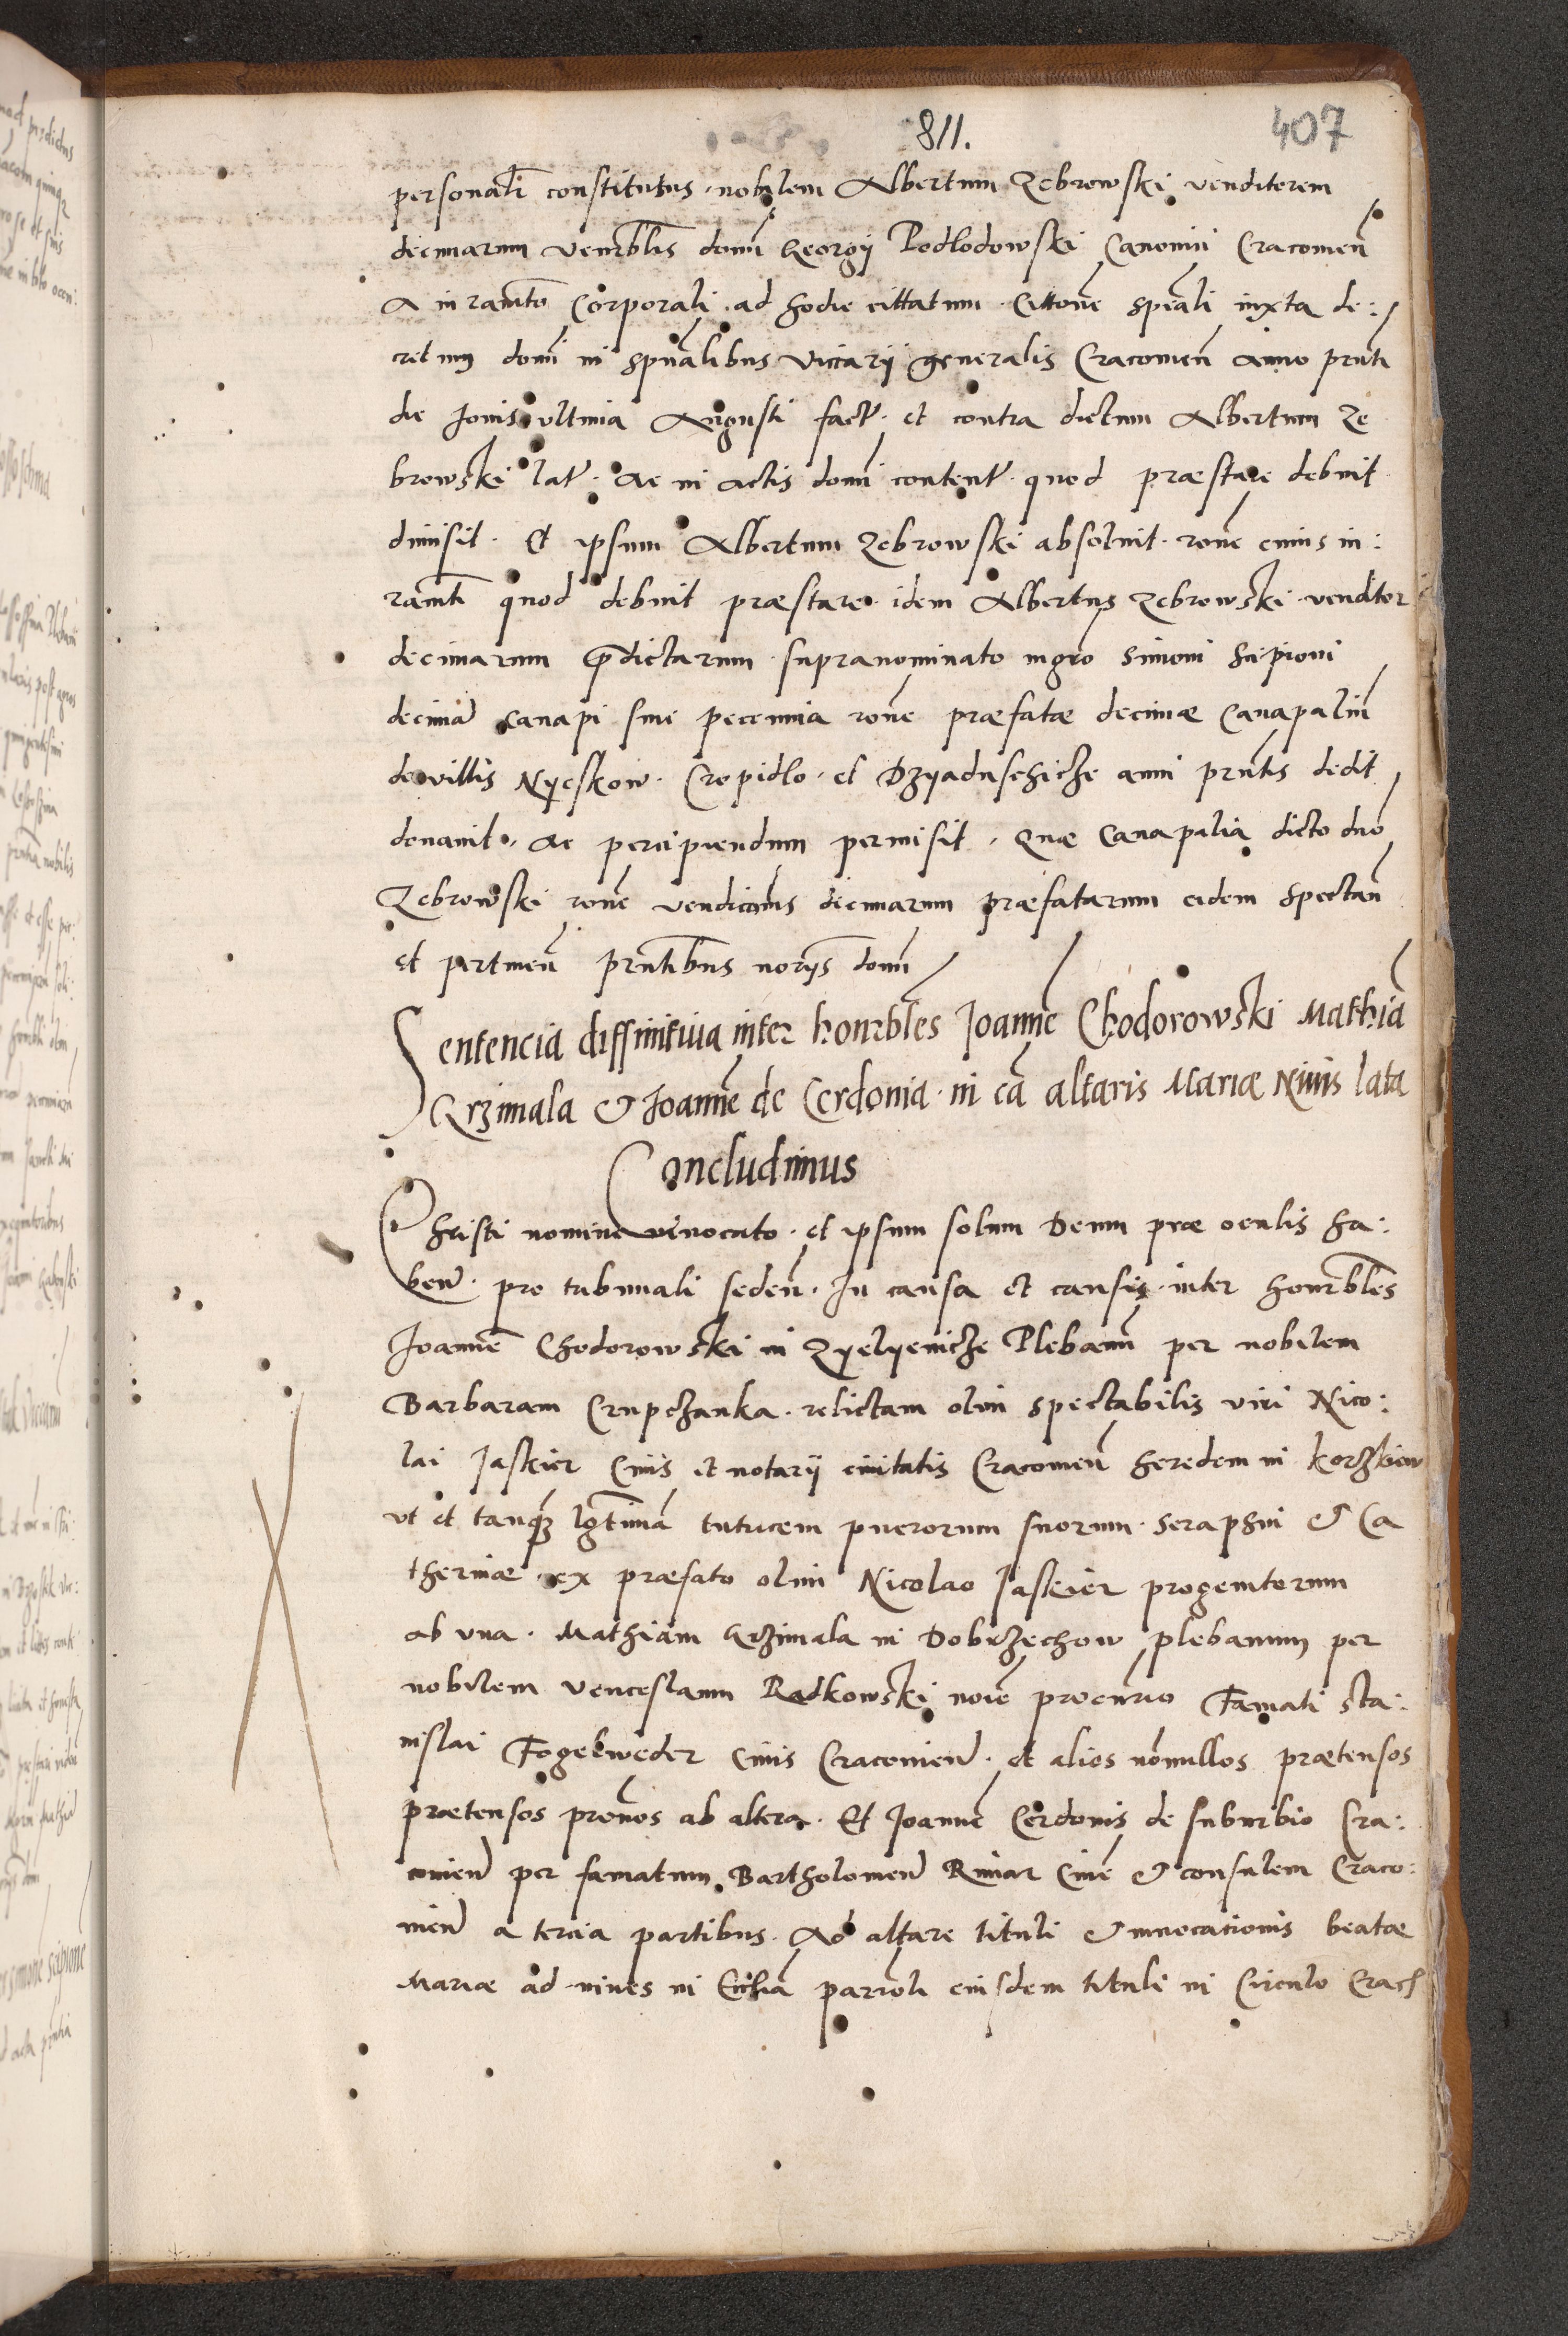 811.
407
personalr̄ constitutus · nobilem Albertum Zebrowski venditorem
decimarum venerblis domi Georgii Podlodowski Canonici Cracouien̄
A iuramto corporali · ad hodie cittatum · Cittone speali iuxta de:
cretum domi in spualibus viccarij generalis Cracouien̄ anno prnti
die Jouis vltima Augusti fact · et contra dictum Albertum Ze
browski lat · Ac in actis domi content · quod præstare debuit
dimisit · Et ipsum Albertum Zebrowski absoluit · rone cuius iu:
ramti quod debuit præstare · idem Albertus Zebrowski · venditor
decimarum p̄dictarum · supranominato mgro Simoni Scipioni
decimā canapi siue pecunia rone præfatæ decimæ Canapaliū
de villis Nyeskow · Cropidlo · et Dzyaduschicze anni prntis dedit
donauit · Ac percipiendum permisit · Quæ Canapalia dicto dno
Zebrowski rone vendicōnis decimarum præfatarum eidem spectan̄
et pertinen̄ prntibus noriis domi
Sentencia diffinitiua inter honrbles Joannē Chodorowski Mathiā
Grzimala & Joannē de Cerdonia · in cā altaris Mariæ Niuis lata
Concludimus
Christi nomine inuocato · et ipsum solum Deum præ oculis ha:
ben̄ · pro tribunali seden̄ · In causa et causis · inter honrbles
Joannē Chodorowski in Zyelyenicze Plebanū per nobilem
Barbaram Crupczanka · relictam olim spectabilis viri Nico:
lai Jaskier Ciuis et notarij ciuitatis Cracouien̄ heredem in Korzkiew
vt et tanq̄ lgtimā tutricem puerorum suorum · Seraphini & Ca
therinæ · ex præfato olim Nicolao Jaskier progenitorum
ab vna · Mathiam Grzimala in Dobrzechow plebanum per
nobilem venceslaum Radkowski noie procurrio Famati Sta:
nislai Fogelweder Ciuis Cracouien̄ · et alios nōnullos prætensos
prætensos prōnos ab altera · Et Joannē Cerdonis de suburbio Cra:
couien̄ per famatum Bartholomeū Rimar Ciuē & consulem Craco:
uien̄ a tercia partibus · Ad altare tituli & inuocationis beatæ
Mariæ ad niues in Ecclia parroli eiusdem tituli in Circulo Crac